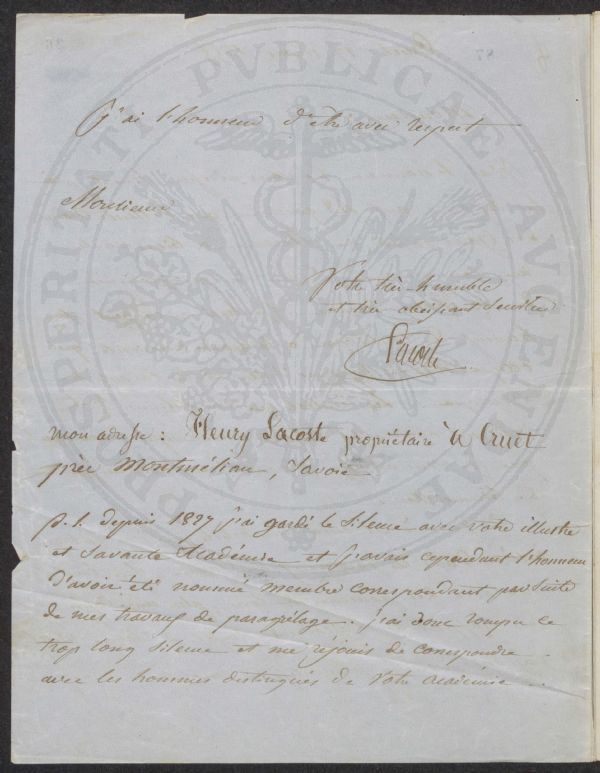 J'ai l'honneur d'être avec respect
Monsieur
Votre très-humble
et très obéissant serviteur
Lacoste
mon adresse : Fleury Lacoste propriétaire à Cruet
près Montmélian, Savoie
p. s. depuis 1827 j'ai gardé le silence avec votre illustre
et savante Académie et j'avais cependant l'honneur
d'avoir été nommé membre correspondant par suite
de mes travaux de paragrélage. j'ai donc rompu ce
trop long silence et me réjouis de correspondre
avec les hommes distingués de votre académie
PROSPERITATI PVBLICAE AVGENDAE